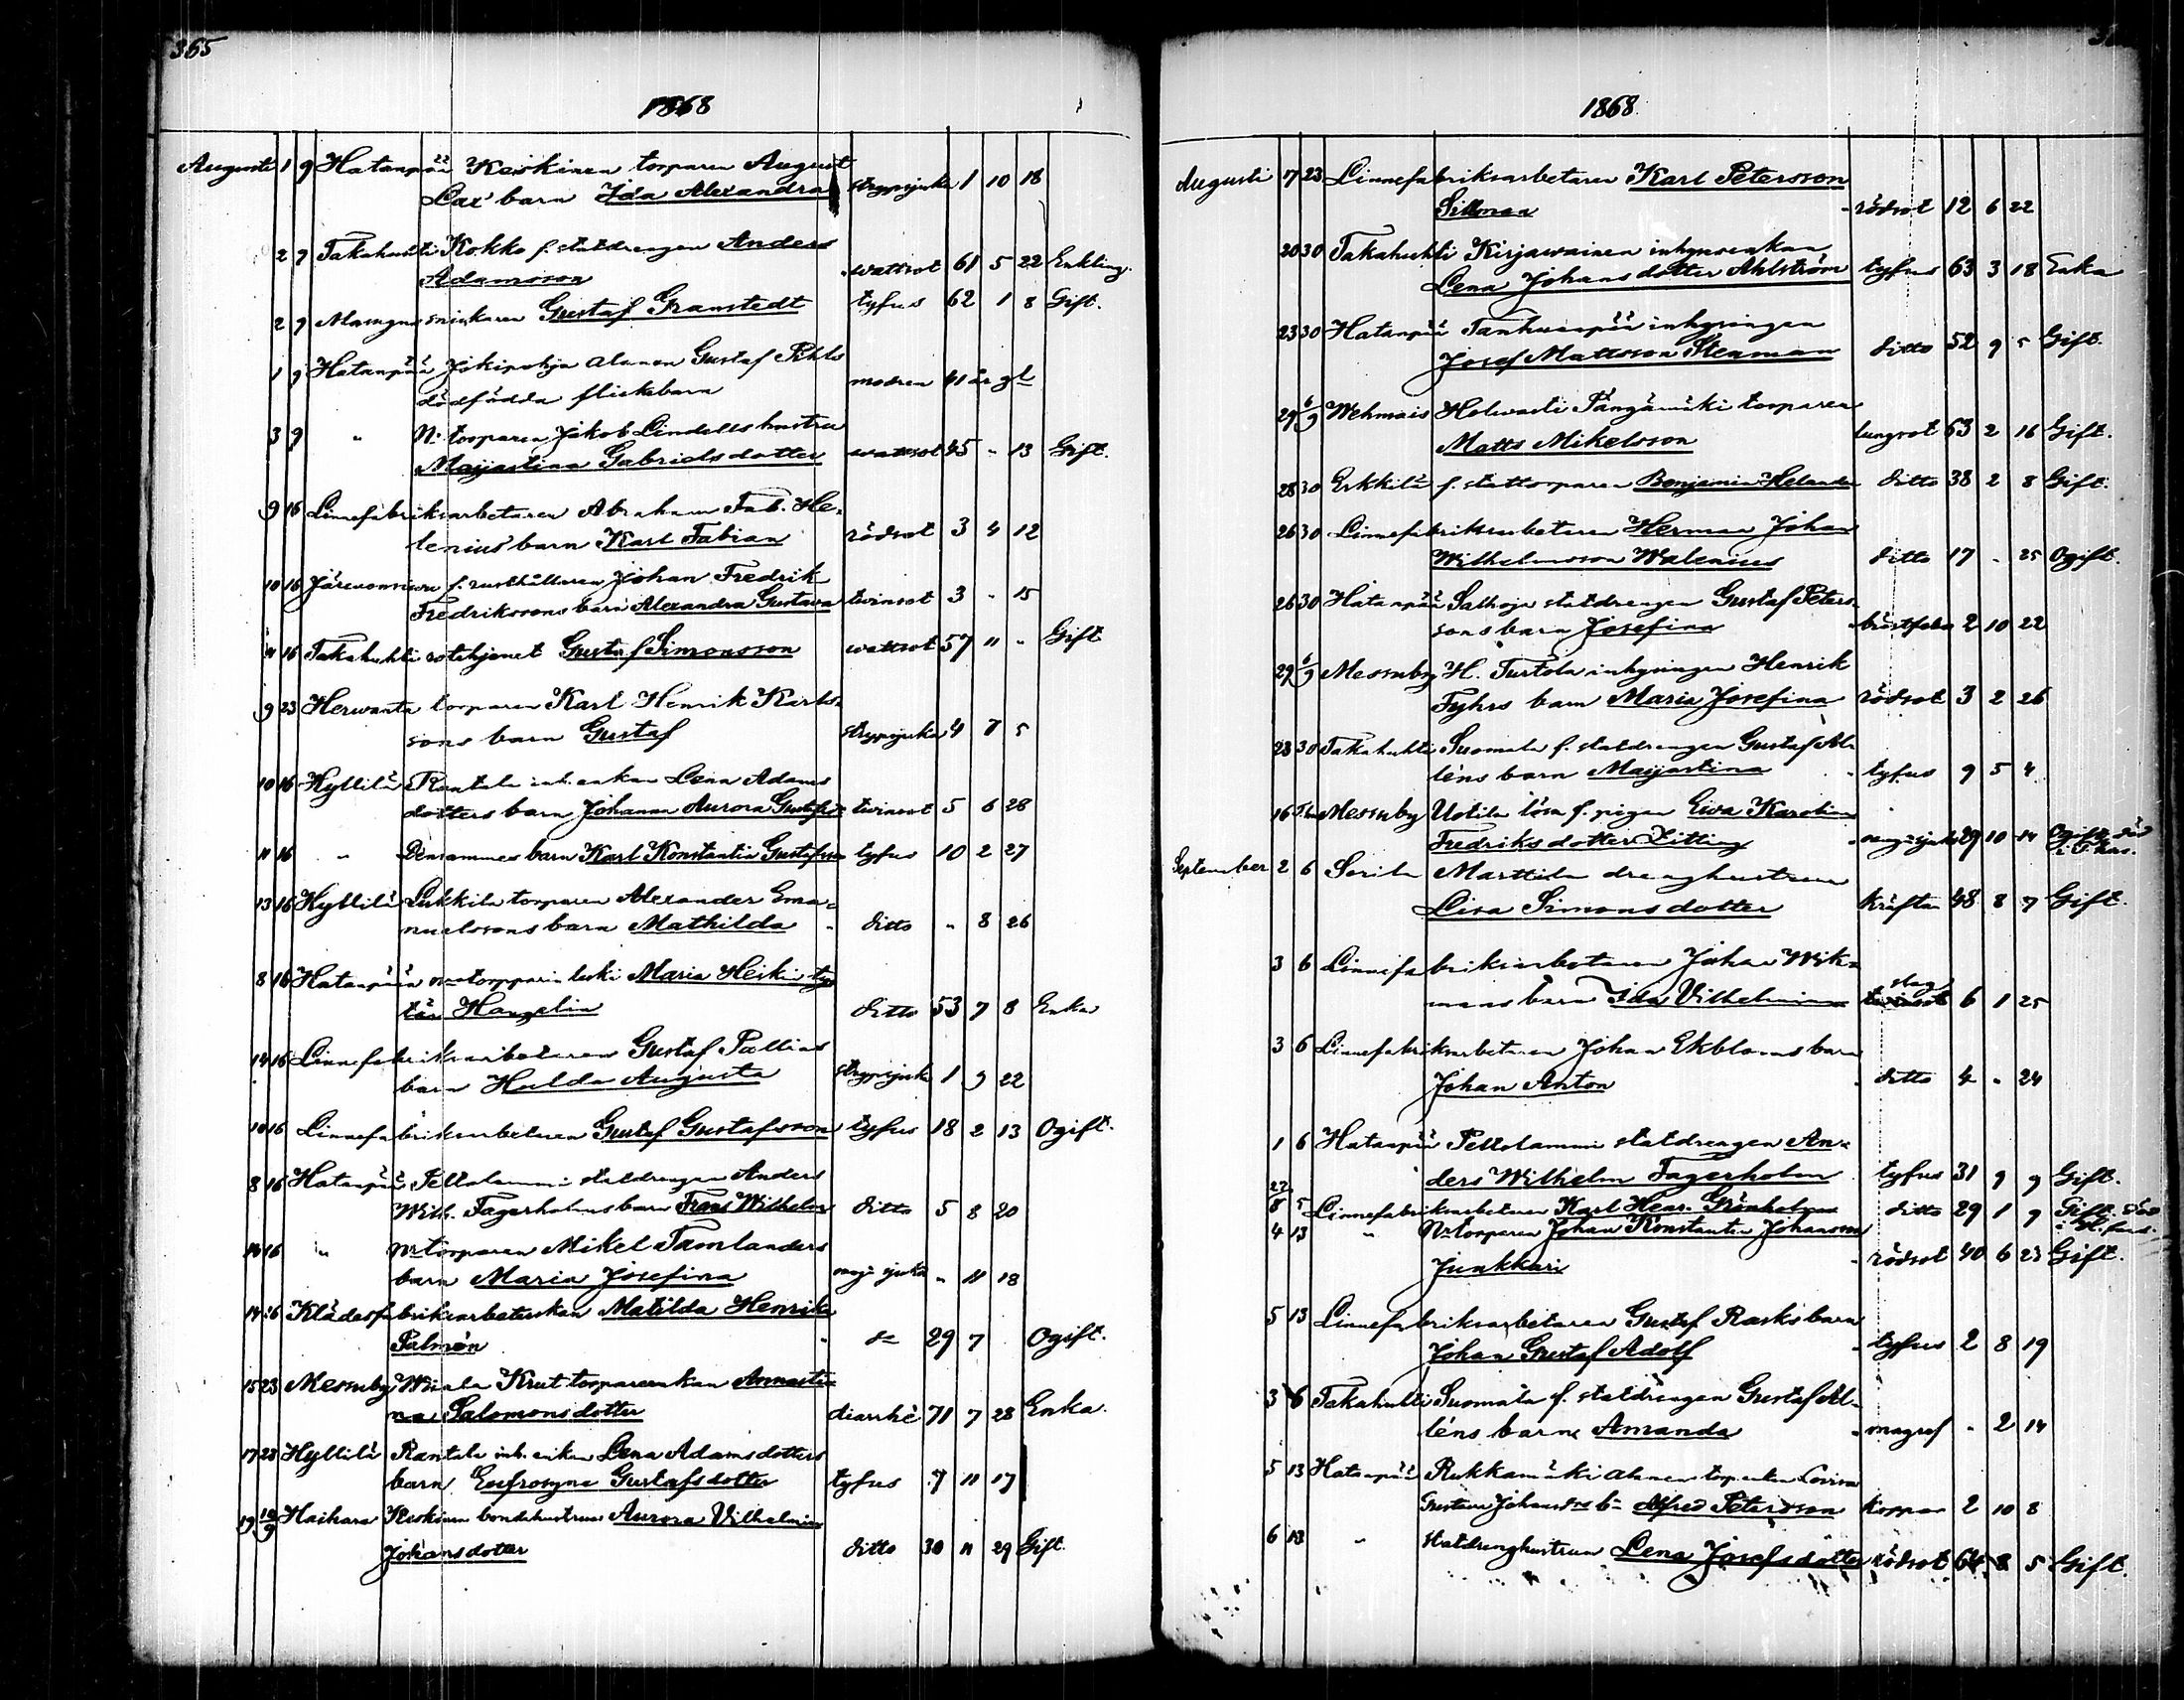 365
1868
Augusti 1 9 Hatanpää Keskinen torparen August
Lax' barn Ida Alexandra strypsjuka 1 10 18
2 9 Takahuhti Kokko f. statdrengen Anders
Adamsson wattsot 61 5 22 Enkling.
2 9 snickaren Gustaf Granstedt tyfus 62 1 8 Gift.
1 9 Hatanpää Jokipohja Gustaf
dödfödda flickebarn modren 41 år gl
3 9 " torparen Jakob Lindells hustru
Majjastina Gabrielsdotter wattsot 45 - 13 Gift.
9 16 Linnefabriksarbetaren Abraham Fab. He-
lenius' barn Karl Fabian rödsot 3 4 12
10 16 f. rusthållaren Johan Fredrik
Fredrikssons barn Alexandra Gustava twinsot 3 - 15
11 16 Takahuhti rotehjonet Gustaf Simonsson wattsot 57 11 - Gift
9 23 Herwanta torparen Karl Henrik Karls-
sons barn Gustaf strypsjuka 4 7 5
10 16 Hyllilä Rantala inh. enkan Lena Adams
dotters barn Johanna Aurora twinsot 5 6 28
11 16 " Densammes barn Karl Konstantin Gustafsson tyfus 10 2 27
13 16 Hyllilä Lukkila torparen Alexander Ema-
nuelssons barn Mathilda ditto " 8 26
8 16 Hatanpään leski Maria Heikin tyt
tär ditto 53 7 8 Enka
14 16 Linnefabriksarbetaren Gustaf
barn Hulda Augusta strypsjuka 1 9 22
16 Linnefabriksarbetaren Gustaf Gustafsson tyfus 18 2 13 Ogift.
8 16 Hatanpää Peltolammi statdrengen Anders
Wilh. Fagerholms barn Frans Wilhelm ditto 5 8 20
14 16 " torparen Mikel Tamlanders
barn Maria Josefina sjuka - 11 18
14 16 Klädesfabriksarbeterskan Matilda Henrika
Palmén do 29 7 Ogift.
15 23 Messuby Krut torpareenkan Annasti-
na Salomonsdotter diarrhé 71 7 28 Enka.
17 23 Hyllilä Rantala inh. enkan Lena Adamsdotters
barn Eufrosyne Gustafsdotter tyfus 7 11 17
19 Haihara Keskinen bondehustrun Aurora Vilhelmina
Johansdotter ditto 30 11 29 Gift.
1868
Augusti 17 23 Linnefabriksarbetaren Karl Petersson
Sillman rödsot 12 6 22
20 30 Takahuhti Kirjawainen inhysesenkan
Lena Johansdotter Ahlström tyfus 63 3 18 Enka
23 30 Hatanpää Tanhuanpää inhysingen
Josef Mattsson Stenman ditto 52 9 5 Gift.
29 6/9 Wehmais Holwasti torparen
Matts Mikelsson lungsot 63 2 16 Gift.
28 30 Erkkilä f. stattorparen Benjamin Helander ditto 38 2 8 Gift.
26 30 Linnefabriksarbetaren Herman Johan
Wilhelmsson Walenius ditto 17 - 25 Ogift.
26 30 Hatanpää statdrengen Gustaf Peters-
sons barn Josefina 2 10 22
29 6/9 Messuby H. Turtola inhysingen Henrik
Fyhrs barn Maria Josefina rödsot 3 2 26
28 30 Takahuhti Suomala f. statdrengen Gustaf Al-
léns barn Majjastina tyfus 9 5 4
16 Messuby Uotila lösa f. pigan Eiva Karolina
Fredriksdotter Litting 29 10 14 Ogift, död
September 2 6 Sorila Marttila drenghustrun
Lisa Simonsdotter kräftan 48 8 7 Gift.
3 6 Linnefabriksarbetaren Johan Wik-
mans barn Ida Vilhelmina slag 6 1 25
3 6 Linnefabriksarbetaren Johan Ekbloms barn
Johan Anton ditto 4 - 24
1 6 Hatanpää Peltolammi statdrengen An-
ders Wilhelm Fagerholm tyfus 31 9 9 Gift.
22/8 5 Linnefabriksarbetaren Karl Henr. Grönholm ditto 29 1 9 Gift. död
4 13 " torparen Johan Konstantin Johansson
Junkkari rödsot 40 6 23 Gift.
5 13 Linnefabriksarbetaren Gustaf Rasks barn
Johan Gustaf Adolf tyfus 2 8 19
3 6 Takahuhti Suomala f. statdrengen Gustaf Al-
léns barn Amanda magref - 2 14
5 13 Hatanpää Rukkamäki Lovisa
Gustava Alfred Petersson koppor 2 10 8
6 13 " statdrenghustrun Lena Josefsdotter rödsot 64 8 5 Gift.